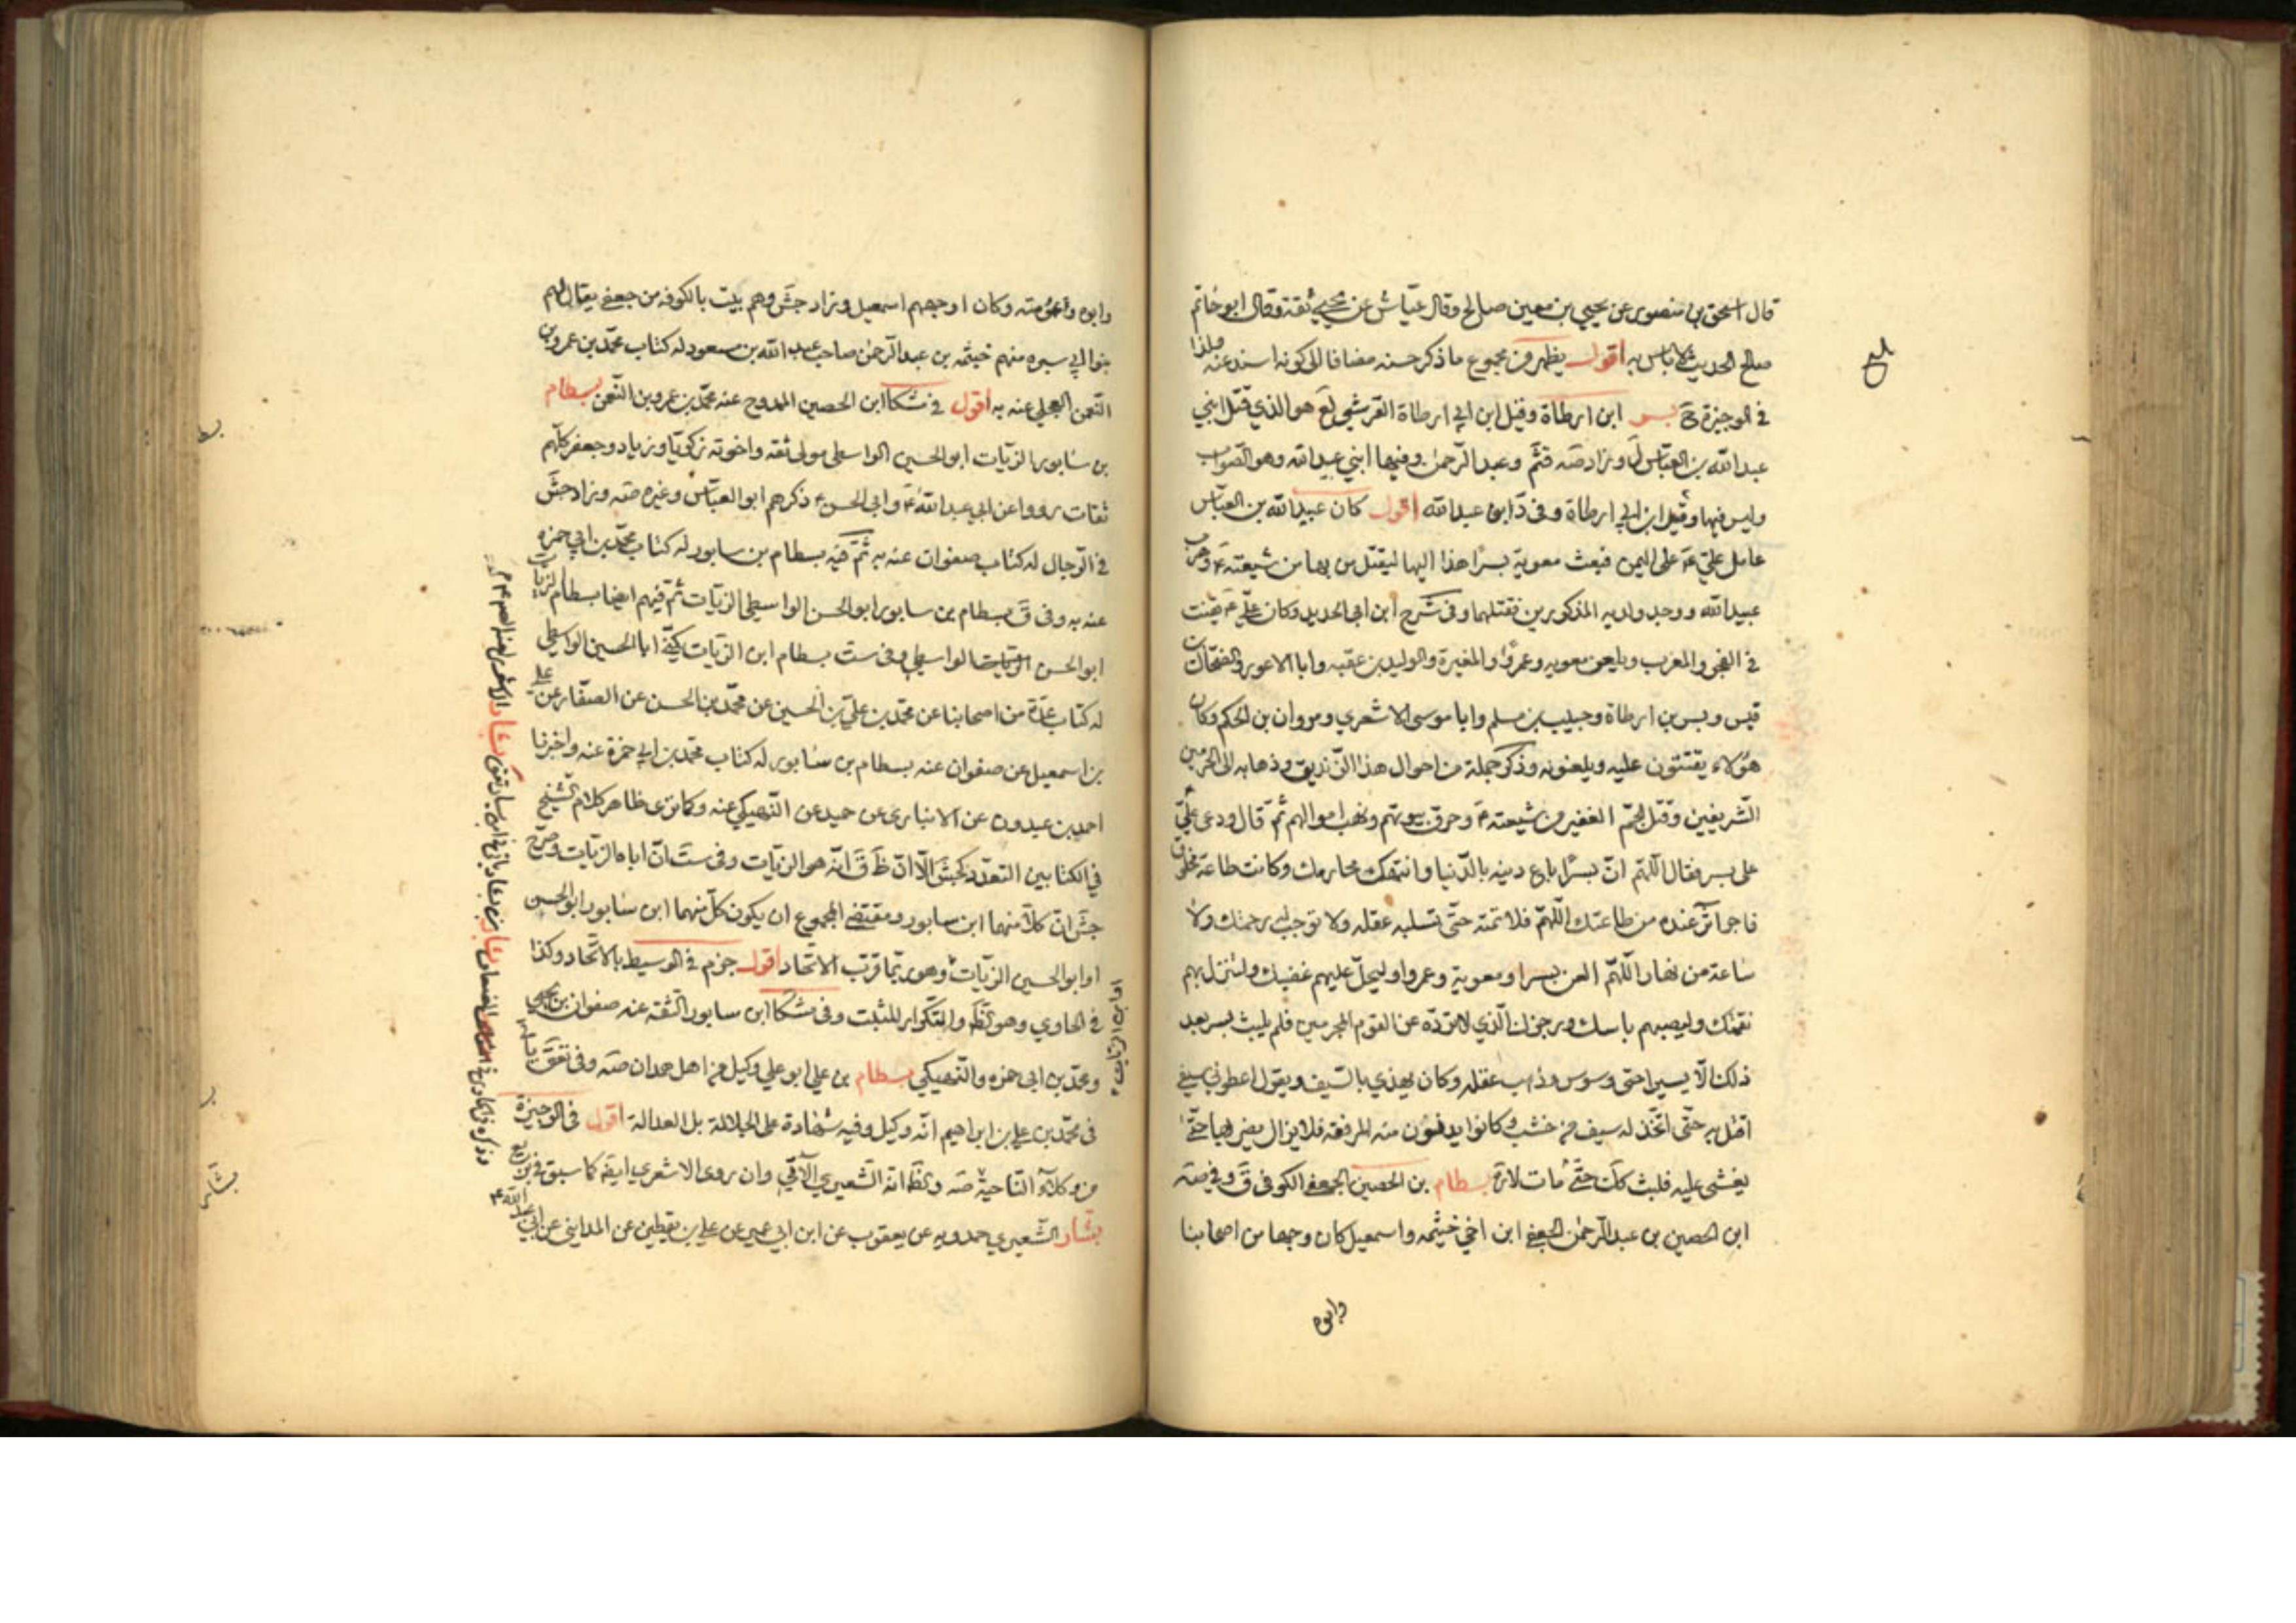 قال اسحق بن منصور عن يحيي بن معين صالح وقال عباس عن يحيي ثقة وقال ابو حاتم
صالح الحديث لا باس به اقول يظهر من مجموع ما ذكر حسنه مضافا الى كونه اسند عنه ولذا
في الوجيزة ح بسر ابن ارطاة وقيل ابن ابي ارطاة القرشي لع هو الذي قتل ابني
عبد الله بن العباس ل وزاد صه قثم وعبد الرحمن وفيها ابني عبيد الله وهو الصواب
وليس فيها وقيل ابن ابي ارطاة وفي د ابن عبد الله اقول كان عبيد الله بن العباس
عامل علي ع على اليمن فبعث معوية بسرا هذا اليها ليقتل من بها من شيعته ع وهرب
عبيد الله ووجد ولديه المذكورين فقتلهما وفي شرح ابن ابي الحديد وكان علي ع يقنت
في الفجر والمغرب ويلعن معويه وعمروا والمغيرة والوليد بن عقبه وابا الاعور والضحاك بن
قيس وبسر بن ارطاة وحبيب بن مسلم وابا موسى الاشعري ومروان بن الحكم وكان
هؤلاء يقنتون عليه ويلعنونه وذكر جملة من احوال هذا الزنديق وذهابه الى الحرمين
الشريفين وقتل الجم الغفير من شيعته ع وحرق بيوتهم ونهب اموالهم ثم قال ودعى علي ع
على بسر فقال اللهم ان بسرا باع دينه بالدنيا وانتهك محارمك وكانت طاعة مخلوق
فاجر اثر عنده من طاعتك اللهم فلا تمته حتى تسلبه عقله ولا توجب له رحمتك ولا
ساعة من نهار اللهم العن بسرا ومعوية وعمروا وليحل عليهم غضبك ولتنزل بهم
نقمتك وليصبهم باسك ورجزك الذي لا ترده عن القوم المجرمين فلم يلبث بسر بعد
ذلك الا يسيرا حتى وسوس وذهب عقله وكان يهذي بالسيف ويقول اعطوني سيفي
اقتل به حتى اتخذ له سيف من خشب وكانوا يدنون منه المرفقه فلا يزال يضربها حتى
يغشى عليه فلبث كك حتى مات بسطام بن الحصين الجعفي الكوفي ق وفي صه
ابن الحصين بن عبد الرحمن الجعفي ابن اخي خيثمه واسمعيل كان وجها من اصحابنا
وابوه
وابوه وعمومته وكان اوجههم اسمعيل وزاد جش وهم بيت بالكوفه من جعفي يقال لهم
بنو ابي سبره منهم خيثمه بن عبد الرحمن صاحب عبد الله بن مسعود له كتاب محمد بن عمرو بن
النعمن البجلي عنه به اقول في مشكا ابن الحصين الممدوح عنه محمد بن عمرو بن النعمن بسطام
بن سابور الزيات ابو الحسين الواسطي مولى ثقه واخوته زكريا وزياد وجعفر كلهم
ثقات رووا عن ابي عبد الله ع وابي الحسن ع ذكرهم ابو العباس وغيره صه وزاد جش
في الرجال له كتاب صفوان عنه به ثم فيه بسطام بن سابور له كتاب محمد بن ابي حمزه
عنه به وفي ق بسطام بن سابور ابو الحسن الواسطي الزيات ثم فيهم ايضا بسطام الزيات
ابو الحسن الواسطي وفي ست بسطام ابن الزيات يكنى ابا الحسين الواسطي
له كتاب عدة من اصحابنا عن محمد بن علي بن الحسين عن محمد بن الحسن عن الصفار عن علي
بن اسمعيل عن صفوان عنه بسطام بن سابور له كتاب محمد بن ابي حمزة عنه واخبرنا
احمد بن عبدون عن الانباري عن حميد عن النهيكي عنه وكما ترى ظاهر كلام الشيخ
في الكتابين التعدد كجش الا ان ظ ق انه هو الزيات وفي ست ان اباه الزيات وصرح
جش ان كلا منهما ابن سابور ومقتضى المجموع ان يكون كل منهما ابن سابور ابو الحسن
او ابو الحسين الزيات وهو ربما قرب الاتحاد اقول جزم في الوسيط بالاتحاد وكذا
في الحاوي وهو ظ والتكرار للتثبت وفي مشكا ابن سابور الثقه عنه صفوان بن يحيى
ومحمد بن ابي حمزه والنهيكي بسطام بن علي ابو علي وكيل من اهل همدان صه وفي تعق
في محمد بن علي بن ابراهيم انه وكيل وفيه شهادة على الجلالة بل العدالة اقول في الوجيزة
من وكلاء الناحية صه ويظ انه الشعيري الآتي وان روى الاشعري ايضا كما سبق في
بشار الشعيري حمدويه عن يعقوب عن ابن ابي عمير عن علي بن يقطين عن المدايني عن ابي عبد الله ع